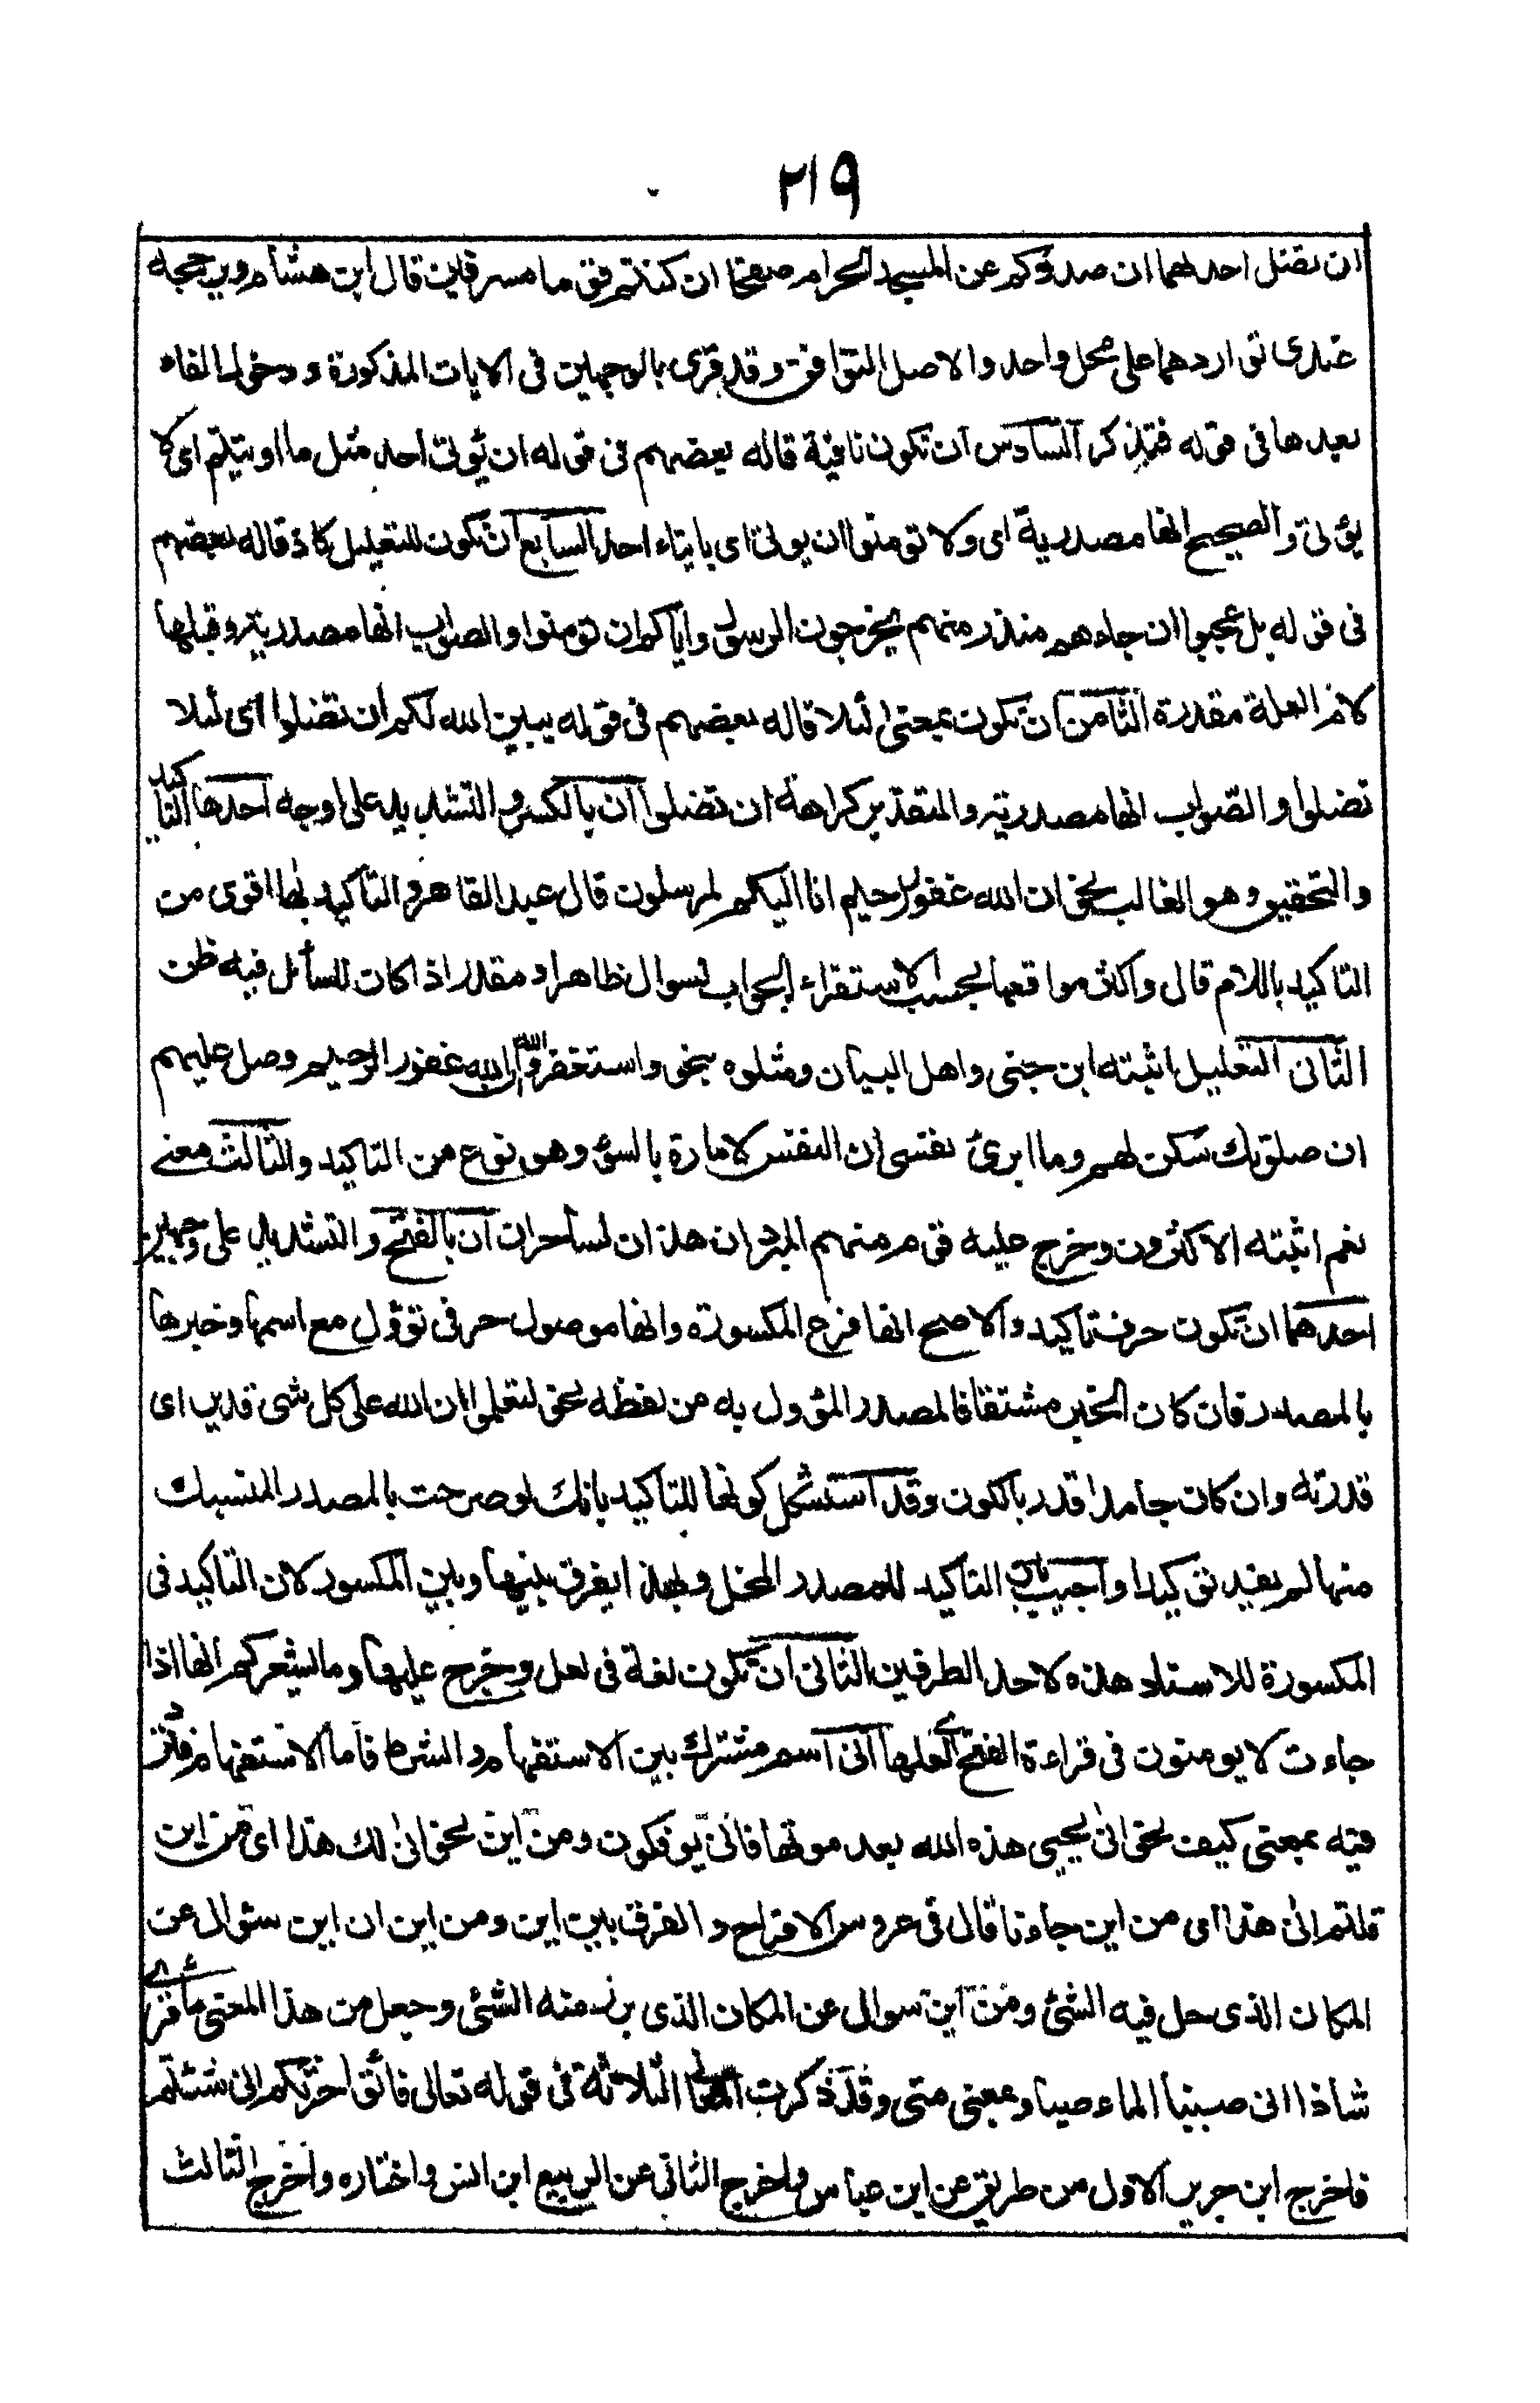 ٢١٩
ان تضل احدهما ان صدوكم عن المسجد الحرام صفحا ان كنتم قوما مسرفين قال ابن هشام ويرجحه
عندى تواردهما على محل واحد والاصل التوافق وقد قرى بالوجهين فى الايات المذكورة ودخول الفاء
بعدها فى قوله فتذكر السادس ان تكون نافية قاله بعضهم فى قوله ان يؤتى احد مثل ما اوتيتم اى لا
يؤتى والصحيح انها مصدرية اى ولا تومنوا ان يوتى اى بايتاء احد السابع ان تكون للتعليل كاذ قاله بعضهم
فى قوله بل عجبوا ان جاءهم منذر منهم يخرجون الرسول واياكم ان تومنوا والصواب انها مصدرية وقبلها
لام العلة مقدرة الثامن ان تكون بمعنى لئلا قاله بعضهم فى قوله يبين الله لكم ان تضلوا اى لئلا
تضلوا والصواب انها مصدرية والتقدير كراهة ان تضلوا ان بالكسر والتشديد على اوجه احدها التاكيد
والتحقيق وهو الغالب نحو ان الله غفور رحيم انا اليكم لمرسلون قال عبد القاهر والتاكيد بها اقوى من
التاكيد باللام قال واكثر مواقعها بحسب الاستقراء الجواب لسوال ظاهر او مقدر اذا كان للسائل فيه ظن
الثانى التعليل اثبته ابن جنى واهل البيان ومثلوه بنحو واستغفروا الله ان الله غفور رحيم وصل عليهم
ان صلوتك سكن لهم وما ابرئ نفسى ان النفس لامارة بالسوء وهو نوع من التاكيد والثالث معنى
نعم اثبته الاكثرون وخرج عليه قوم منهم المبرد ان هذان لساحران ان بالفتح والتشديد على وجهين
احدهما ان تكون حرف تاكيد والاصح انها فرع المكسورة وانها موصول حرفى تؤول مع اسمها وخبرها
بالمصدر فان كان الخبر مشتقا فالمصدر المؤول به من لفظه نحو لتعلموا ان الله على كل شئ قدير اى
قدرته وان كان جامدا قدر بالكون وقد استشكل كونها للتاكيد بانك لو صرحت بالمصدر المنسبك
منها لم يفيد توكيدا واجيب بان التاكيد للمصدر المنحل ولهذا يفرق بينها وبين المكسورة لان التاكيد فى
المكسورة للاسناد وهذه لاحد الطرفين الثانى ان تكون لغة فى لعل وخرج عليها وما يشعركم انها اذا
جاءت لا يومنون فى قراءة الفتح اى لعلها انى اسم مشترك بين الاستفهام والشرط فاما الاستفهام فترد
فيه بمعنى كيف نحو انى يحيى هذه الله بعد موتها فانى يوفكون ومن اين نحو انى لك هذا اى من اين
قلتم انى هذا اى من اين جاءنا قال فى عروس الافراح والفرق بين اين ومن اين ان اين سئوال عن
المكان الذى حل فيه الشئ ومن اين سوال عن المكان الذى برز منه الشئ وجعل من هذا المعنى ما قرئ
شاذا انى صببنا الماء صبا وبمعنى متى وقد ذكرت المعانى الثلاثة فى قوله تعالى فاتوا حرثكم انى شئتم
فاخرج ابن جرير الاول من طريق عن ابن عباس واخرج الثانى عن الربيع ابن انس واختاره واخرج الثالث